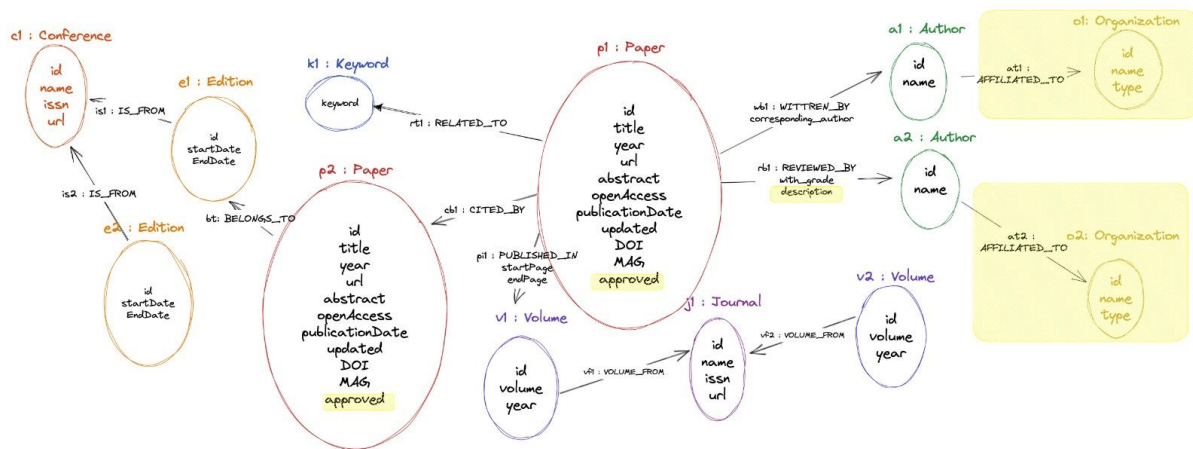 c1 : Conference
id
name
issn
url
is1 : IS_FROM
e1 : Edition
id
startDate
EndDate
is2 : IS_FROM
e2 : Edition
id
startDate
EndDate
bt: BELONGS_TO
k1 : Keyword
keyword
rt1 : RELATED_TO
p2 : Paper
id
title
year
url
abstract
openAccess
publicationDate
updated
DOI
MAG
approved
cb1 : CITED_BY
p1 : Paper
id
title
year
url
abstract
openAccess
publicationDate
updated
DOI
MAG
approved
pi1 : PUBLISHED_IN
startPage
endPage
v1 : Volume
id
volume
year
vf1 : VOLUME_FROM
j1 : Journal
id
name
issn
url
vf2 : VOLUME_FROM
v2 : Volume
id
volume
year
wb1 : WITTREN_BY
corresponding_author
rb1 : REVIEWED_BY
with_grade
description
a1 : Author
id
name
at1 :
AFFILIATED_TO
o1: Organization
id
name
type
a2 : Author
id
name
at2 :
AFFILIATED_TO
o2: Organization
id
name
type